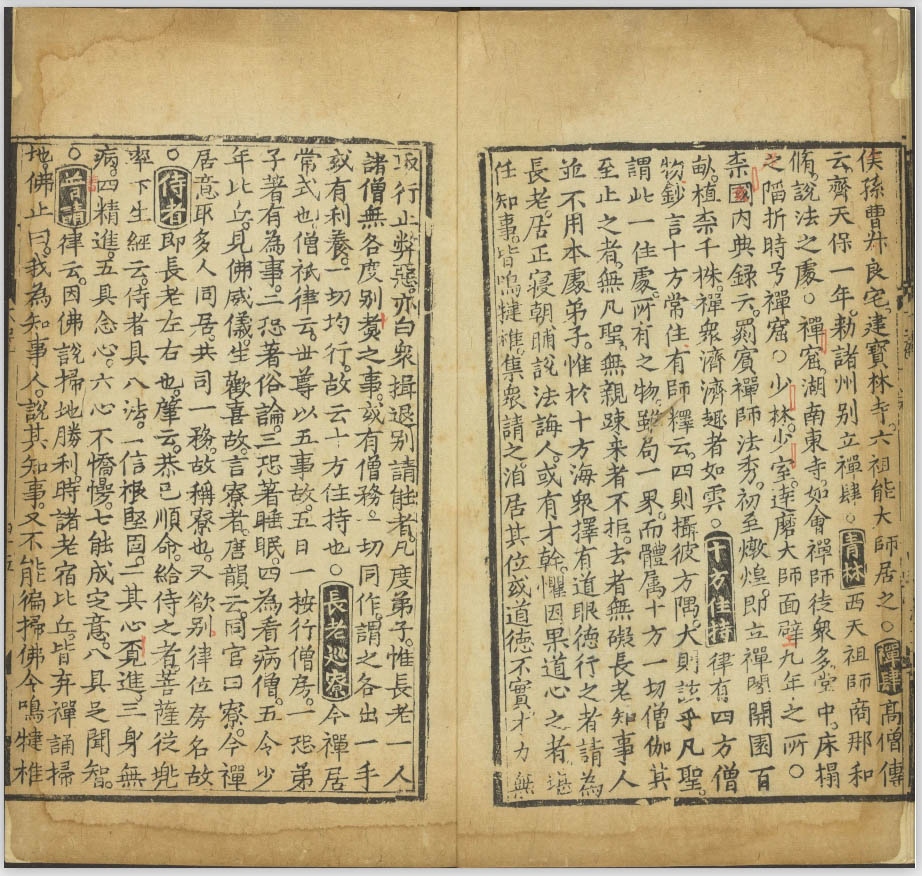 侯孫曹叔良宅。建寶林寺。六祖能大師居之○禪肆高僧傳
云。齊天保一年。勅諸州别立禪肆。○青林西天祖師商那和
脩。說法之處○禪窟。湖南東寺。如會禪師徒衆多。堂中。床榻
之陷折。時号禪窟○少林。少室。達磨大師面壁九年之所○
柰園内典録云。罽賓禪師法秀。初至燉煌。即立禪閣。開園百
畝。植柰千株。禪衆濟濟趣者如雲○十方住持律有四方僧
物。鈔言十方常住。有師釋云。四則攝彼方隅。大則該乎凡聖。
謂此一住處。所有之物。雖局一界。而體属十方一切僧伽。其
至止之者。無凡聖。無親踈。來者不拒。去者無礙。長老知事人
並不用本處弟子。惟於十方海衆。擇有道眼德行之者。請為
長老。居正寢。朝晡說法誨人。或有才幹。懼因果道心之者。堪
任知事。皆鳴犍椎。集衆請之。㳙居其位。或道德不實。才力無
取。行止弊惡。亦白衆揖退。别請能者。凡度弟子。惟長老一人
諸僧無各度别㸑之事。或有僧務。一切同作。謂之各出一手
或有利養。一切均行。故云十方住持也○長老巡寮今禪居
常式也。僧祇律云。世尊以五事故。五日一按行僧房。一恐弟
子著有為事。二恐著俗論。三恐著睡眠。四為看病僧。五令少
年比丘。見佛威儀。生歡喜故。言寮者。唐韻云。同官曰寮。今禪
居意取多人同居。共司一務。故稱寮也。又欲别律位房名故
○侍者即長老左右也。肇云。恭己順命。給侍之者。菩薩從兠
率下生經云。侍者具八法。一信根堅固。二其心覔進。三身無
病。四精進。五具念心。六心不憍慢。七能成定意。八具足聞智。
○普請律云。因佛說掃地勝利。時諸老宿比丘。皆弃禪誦掃
地。佛止曰。我為知事人。說其知事。又不能徧掃。佛令鳴犍椎